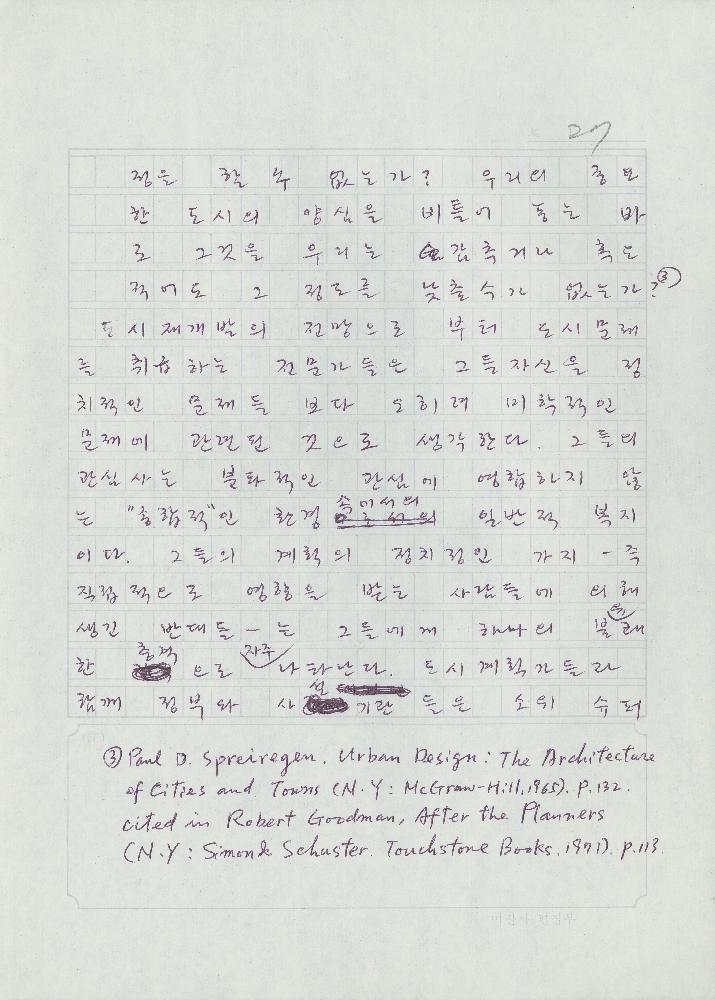 27
정을 할 수 없는가? 우리의 충만
한 도시의 양심을 비틀어 놓는 바
로 그것을 우리는 감축거나 혹은
적어도 그 정도를 낮출수가 없는가? ③
도시재개발의 전망으로 부터 도시문제
를 취급하는 전문가들은 그들자신을 정
치적인 문제들 보다 오히려 미학적인
문제에 관련된 것으로 생각한다. 그들의
관심사는 분화적인 관심에 영합하지 않
는 "종합적"인 환경 속에서의 일반적 복지
이다. 그들의 계획의 정치적인 가지 - 즉
직접적으로 영향을 받는 사람들에 의해
생긴 반대들 - 는 그들에게 하나의 불유쾌
한 충격으로 자주 나타난다. 도시계획가들과
함께 정부와 사설기관들은 소위 슈퍼
③ Paul D. Spreiregen. Urban Design: The Architecture
of Cities and Towns (N.Y: McGraw-Hill, 1965). P.132.
cited in Robert Goodman, After the Planners
(N.Y: Simon & Schuster. Touchstone Books, 1971). p.113.